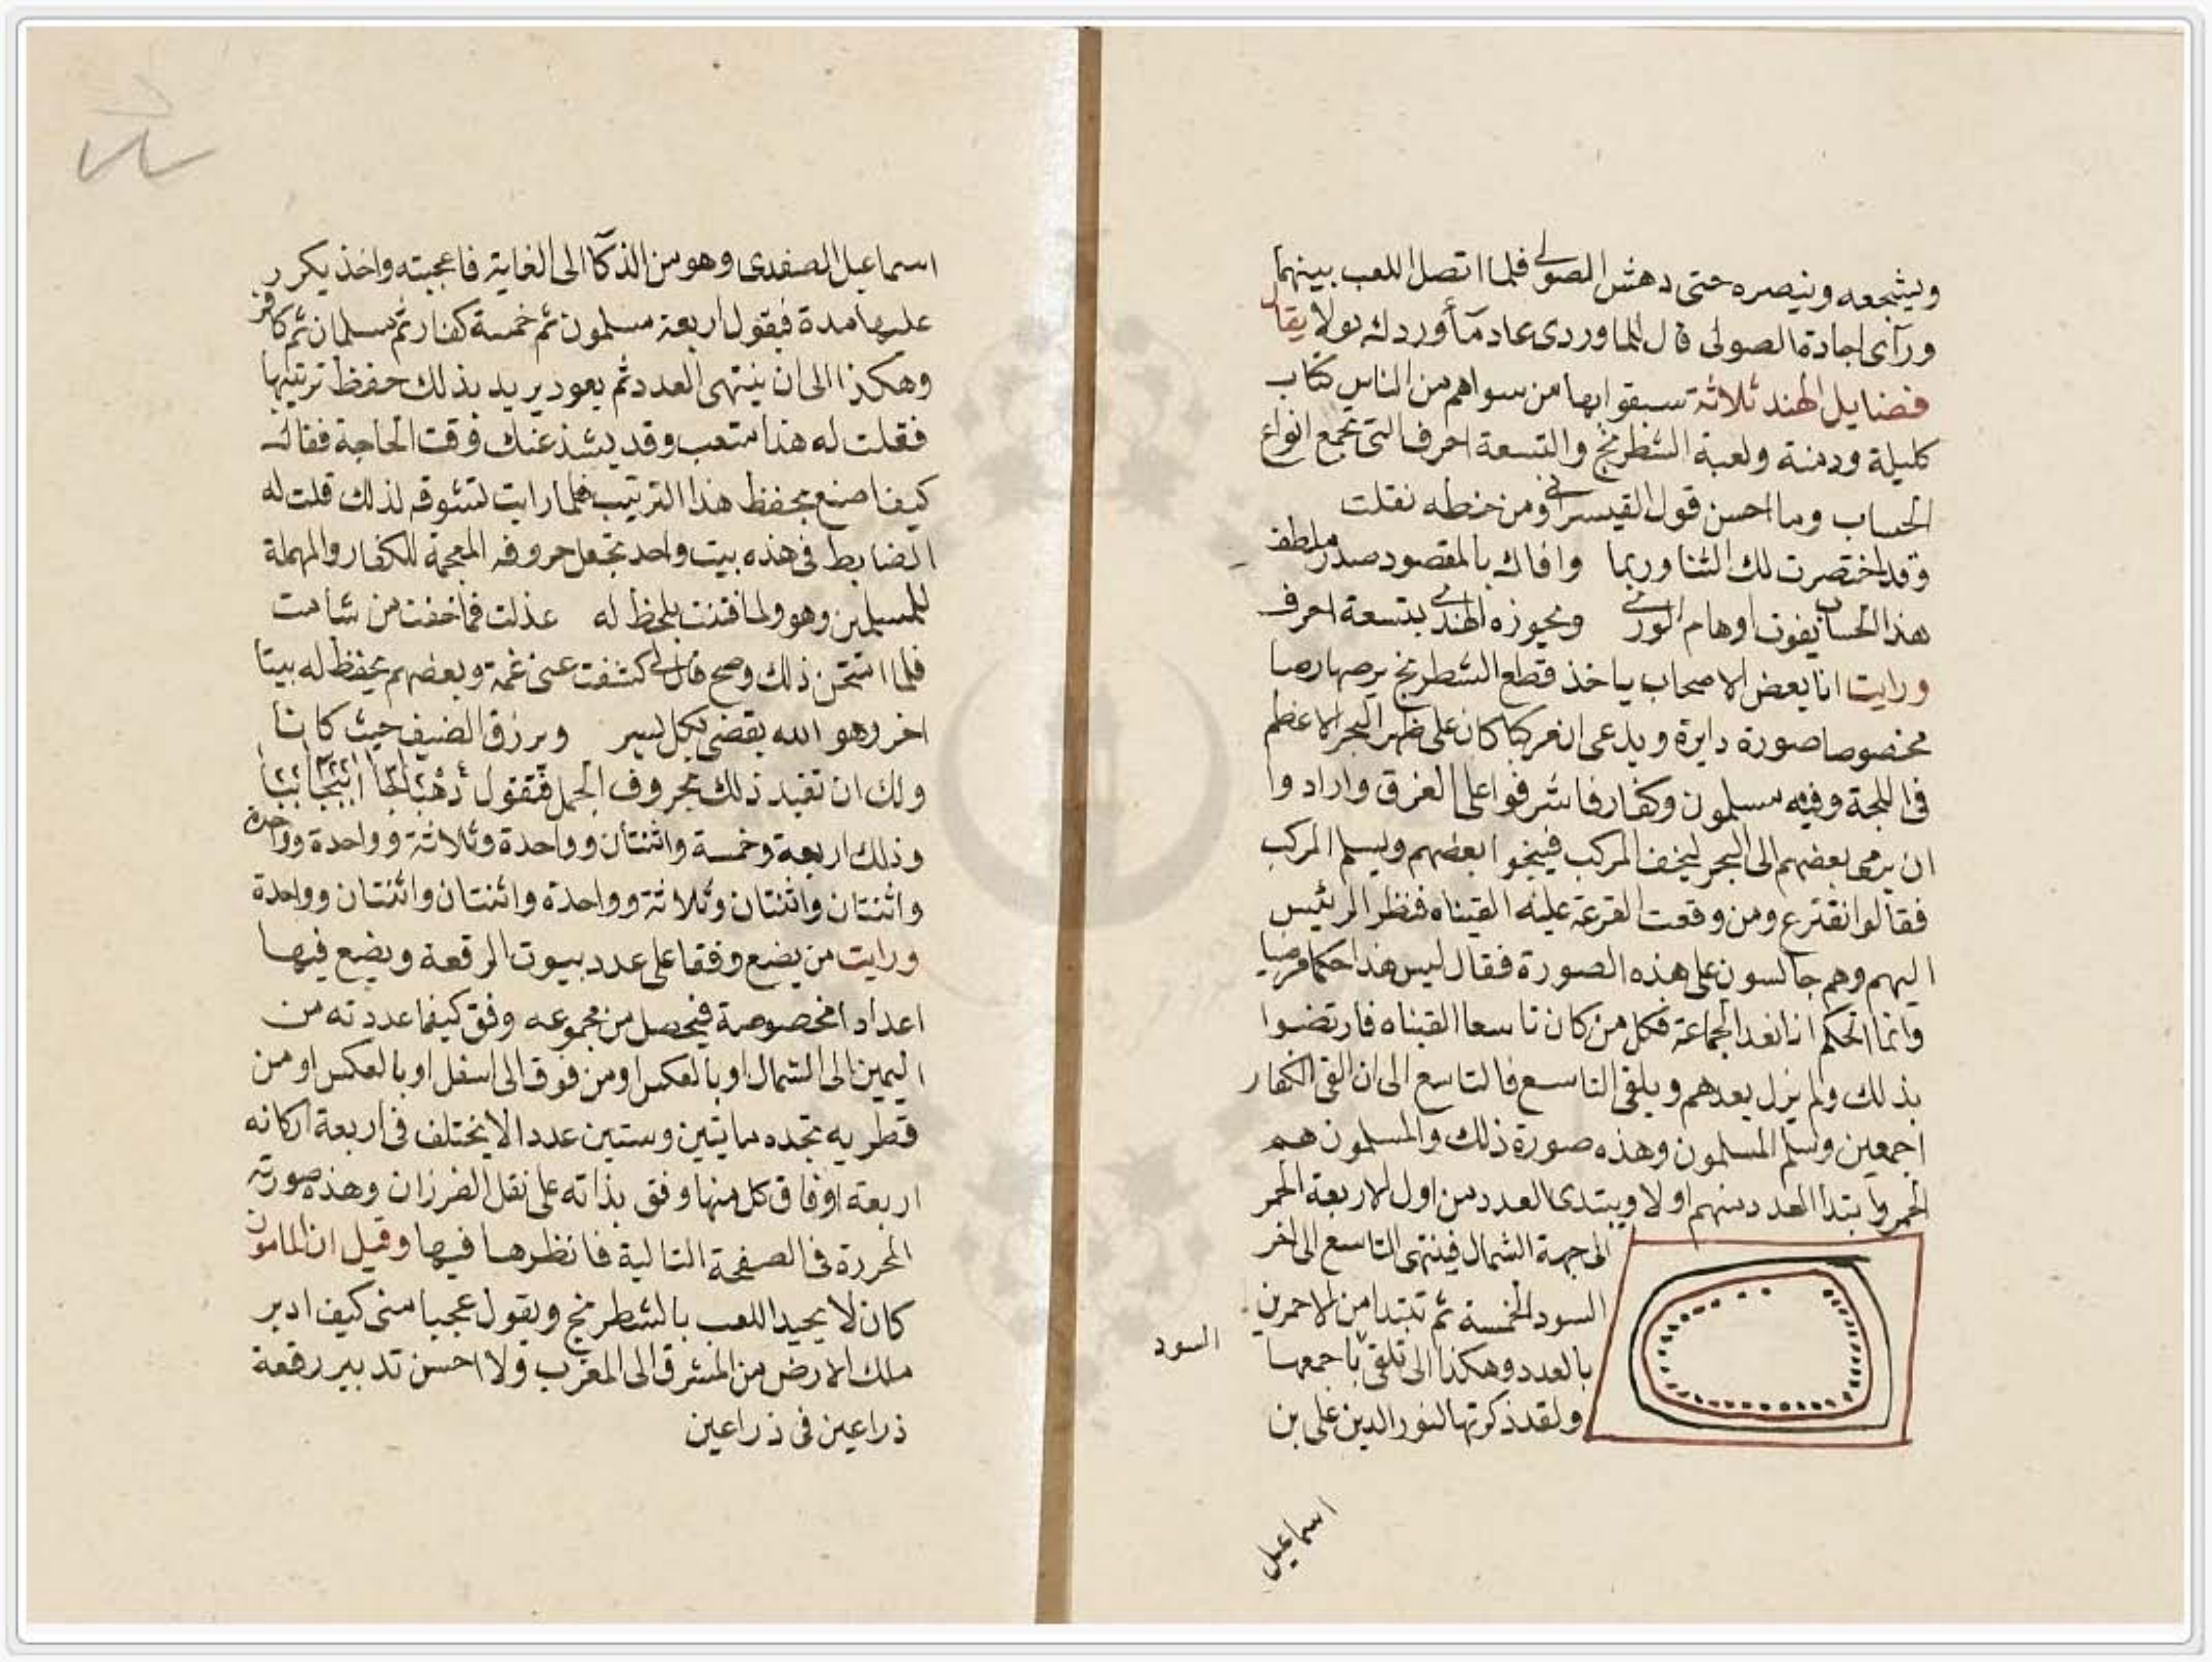 ويشجعه وينصره حتى دهش الصولي فلما اتصل اللعب بينهما
ورآى اجادة الصولى قال للماوردى عاد مآء وردك بولا يقال
فضايل الهند ثلاثة سبقوا بها من سواهم من الناس كتاب
كليلة ودمنة ولعبة الشطرنج والتسعة احرف التى تجمع انواع
الحساب وما احسن قول القيسرانى ومن خطه نقلت
وقد اختصرت لك الثنا وربما وافاك بالمقصود صدر ملطف
هذا الحساب يفوت اوهام الورى ويحوزه الهندى بتسعة احرف
ورايت انا بعض الاصحاب ياخذ قطع الشطرنج يرصها رصا
مخصوصا صورة دايرة ويدعى ان مركبا كان على ظهر البحر الاعظم
فى اللجة وفيه مسلمون وكفار فاشرفوا على الغرق وارادوا
ان يرمى بعضهم الى البحر ليخف المركب فينجوا بعضهم ويسلم المركب
فقالوا نقترع ومن وقعت القرعة عليه القيناه فنظر الرئيس
اليهم وهم جالسون على هذه الصورة فقال ليس هذا حكما مرضيا
وانما الحكم ان نعد الجماعة فكل من كان تاسعا القيناه فارتضوا
بذلك ولم يزل يعدهم ويلقى التاسع فالتاسع الى ان القى الكفار
اجمعين وسلم المسلمون وهذه صورة ذلك والمسلمون هم
الحمر وابتدا العدد منهم اولا ويبتدى العدد من اول الاربعة الحمر
الى جهة الشمال فينتهى التاسع الى اخر
السود الخمسة ثم تبتدا من الاحمرين
بالعدد وهكذا الى تلقى باجمعها
السود
ولقد ذكرتها لنور الدين على بن
اسماعيل
اسماعيل الصفدى وهو من الذكآ الى الغاية فاعجبته واخذ يكرر
عليها مدة فيقول اربعة مسلمون ثم خمسة كفار ثم مسلمان ثم كافر
وهكذا الى ان ينتهى العدد ثم يعود يريد بذلك حفظ ترتيبها
فقلت له هذا متعب وقد يشذ عنك وقت الحاجة فقال
كيف اصنع بحفظ هذا الترتيب فلما رايت لتشوقه لذلك قلت له
الضابط فى هذه بيت واحد تجعل حروفه المعجمة للكفار والمهملة
للمسلمين وهو ولما فتنت بلحظ له عذلت فما خفت من شامت
فلما اتتحن ذلك وصح قال لى كشفت عنى غمة وبعضهم يحفظ له بيتا
اخر وهو الله يقضى بكل يسر ويرزق الضيف حيث كانا
ولك ان تقيد ذلك بحروف الجمل فتقول
وذلك اربعة وخمسة واثنتان وواحدة وثلاثة وواحدة وواحدة
واثنتان واثنتان وثلاثة وواحدة واثنتان واثنتان وواحدة
ورايت من يضع وفقا على عدد بيوت الرقعة ويضع فيها
اعدادا مخصوصة فيحصل من مجموعه وفق كيفما عددته من
اليمين الى الشمال او بالعكس او من فوق الى اسفل او بالعكس او من
قطريه تجده مايتين وستين عددا لا يختلف فى اربعة اركانه
اربعة اوفاق كل منها وفق بذاته على نقل الفرزان وهذه صورته
المحررة فى الصفحة التالية فانظرها فيها وقيل ان المامون
كان لا يجيد اللعب بالشطرنج ويقول عجبا منى كيف ادبر
ملك الارض من المشرق الى المغرب ولا احسن تدبير رقعة
ذراعين فى ذراعين